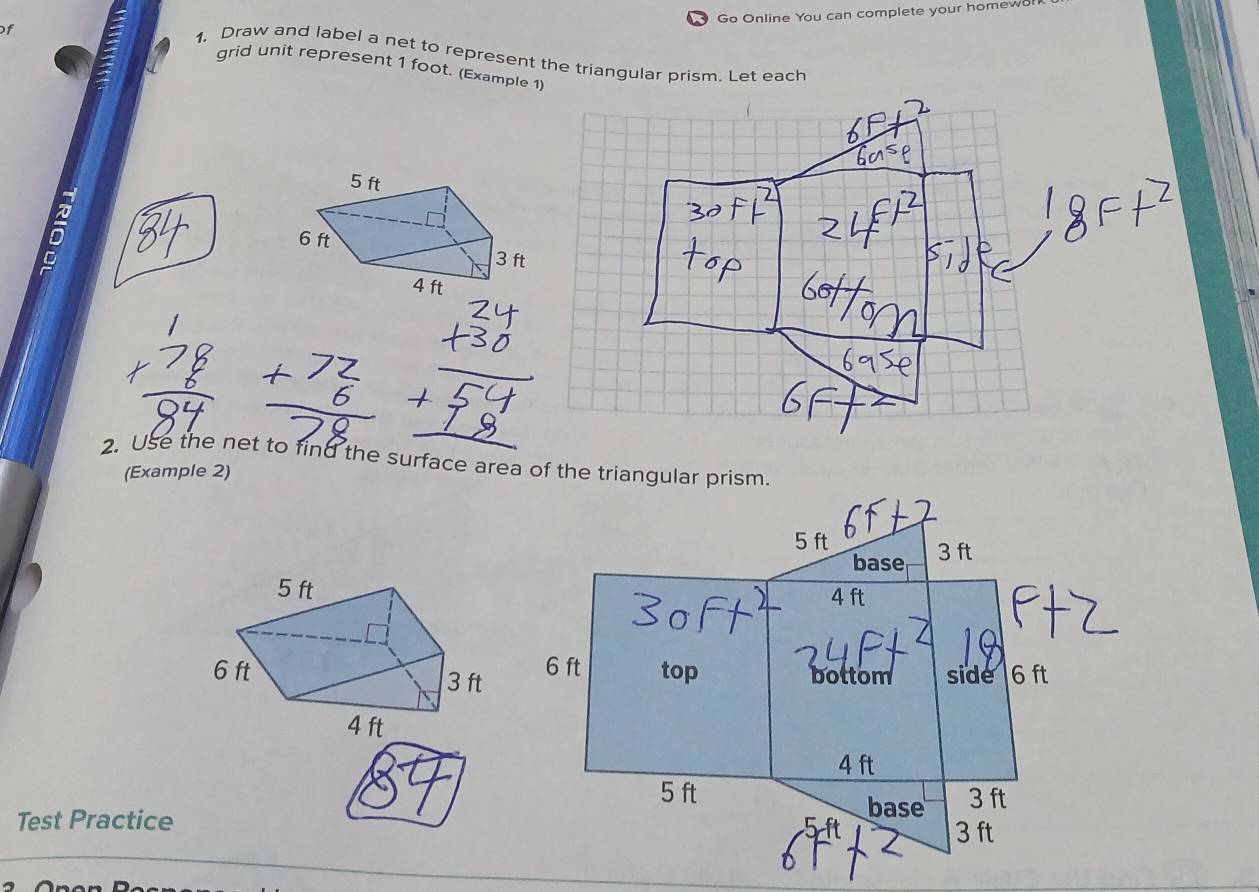 of
Go Online You can complete your homework
1. Draw and label a net to represent the triangular prism. Let each
grid unit represent 1 foot. (Example 1)
6Ft2
base
5 ft
84
6 ft
3 ft
4 ft
30ft2
top
24ft2
bottom
side
18Ft2
base
6Ft2
24
+30
54
+18
+72
6
78
1
+78
6
84
TRIO DL
2. Use the net to find the surface area of the triangular prism.
(Example 2)
5 ft
6 ft
3 ft
4 ft
84
5 ft
6Ft2
base
3 ft
4 ft
30Ft2
24Ft2
18
Ft2
6 ft
top
bottom
side
6 ft
4 ft
5 ft
base
3 ft
5 ft
3 ft
6Ft2
Test Practice